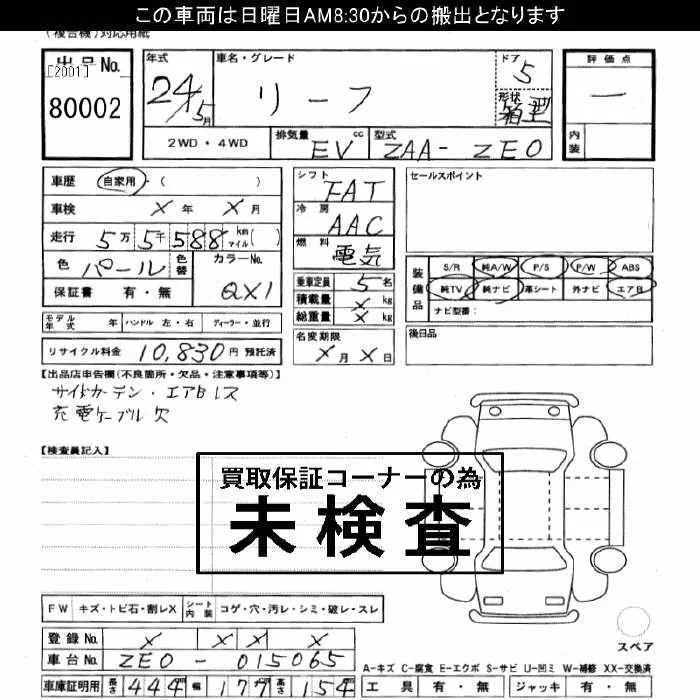 この車両は日曜日AM8:30からの搬出となります
(複合機)対応用紙
出品No.
[2001]
80002
年式
24/5月
車名・グレード
リーフ
ドア
5
形状
箱型
評価点
ー
内装
2WD・4WD
排気量 cc
EV
型式
ZAA-ZE0
車歴 自家用・( )
車検 X 年 X 月
走行 5万5千588 km マイル( )
色 パール 色替 カラーNo.
QX1
保証書 有・無
モデル年式 年 ハンドル 左・右 ディーラー・並行
リサイクル料金 10,830円 預託済
シフト
FAT
冷房
AAC
燃料
電気
乗車定員 5名
積載量 X kg
総重量 X kg
名変期限
X月X日
セールスポイント
装備品
S/R 純A/W P/S P/W ABS
純TV 純ナビ 革シート 外ナビ エアB
ナビ型番:
後日品
【出品店申告欄(不良箇所・欠品・注意事項等)】
サイドカーテン・エアBレス
充電ケーブル欠
【検査員記入】
買取保証コーナーの為
未検査
FW キズ・トビ石・割レX シート内装 コゲ・穴・汚レ・シミ・破レ・スレ
登録No. X X X X
車台No. ZE0-015065
車庫証明用 長さ 444 幅 177 高さ 154
スペア
A-キズ C-腐食 E-エクボ S-サビ U-凹ミ W-補修 XX-交換済
工具 有・無 ジャッキ 有・無